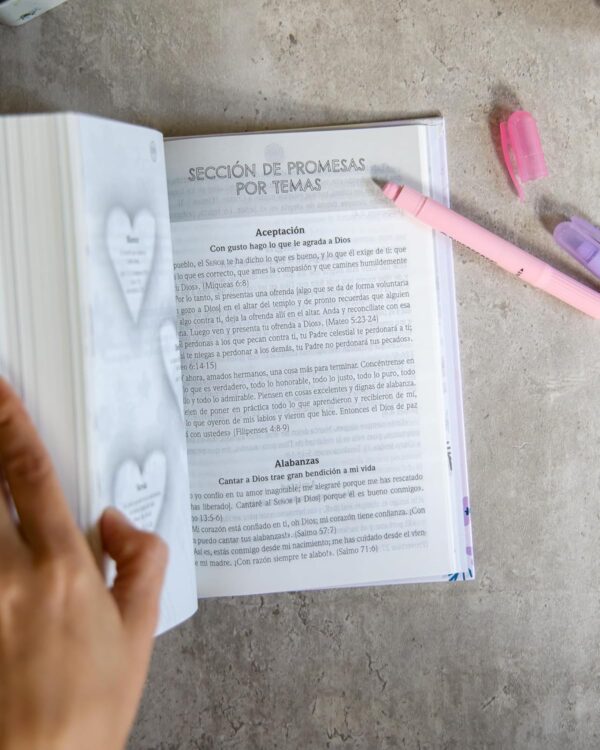 SECCIÓN DE PROMESAS
POR TEMAS
Aceptación
Con gusto hago lo que le agrada a Dios
pueblo, el SEÑOR te ha dicho lo que es bueno, y lo que él exige de ti: que
lo que es correcto, que ames la compasión y que camines humildemente
Dios». (Miqueas 6:8)
Por lo tanto, si presentas una ofrenda [algo que se da de forma voluntaria
gozo a Dios] en el altar del templo y de pronto recuerdas que alguien
algo contra ti, deja la ofrenda allí en el altar. Anda y reconcíliate con esa
na. Luego ven y presenta tu ofrenda a Dios». (Mateo 5:23-24)
perdonas a los que pecan contra ti, tu Padre celestial te perdonará a ti;
te niegas a perdonar a los demás, tu Padre no perdonará tus pecados».
6:14-15)
ahora, amados hermanos, una cosa más para terminar. Concéntrense en
lo que es verdadero, todo lo honorable, todo lo justo, todo lo puro, todo
y todo lo admirable. Piensen en cosas excelentes y dignas de alabanza.
en de poner en práctica todo lo que aprendieron y recibieron de mí,
lo que oyeron de mis labios y vieron que hice. Entonces el Dios de paz
con ustedes» (Filipenses 4:8-9)
Alabanzas
Cantar a Dios trae gran bendición a mi vida
yo confío en tu amor inagotable; me alegraré porque me has rescatado
has liberado]. Cantaré al SEÑOR [a Dios] porque él es bueno conmigo.
13:5-6)
Mi corazón está confiado en ti, oh Dios; mi corazón tiene confianza. ¡Con
puedo cantar tus alabanzas!». (Salmo 57:7)
Así es, estás conmigo desde mi nacimiento; me has cuidado desde el vien-
mi madre. ¡Con razón siempre te alabo!». (Salmo 71:6)